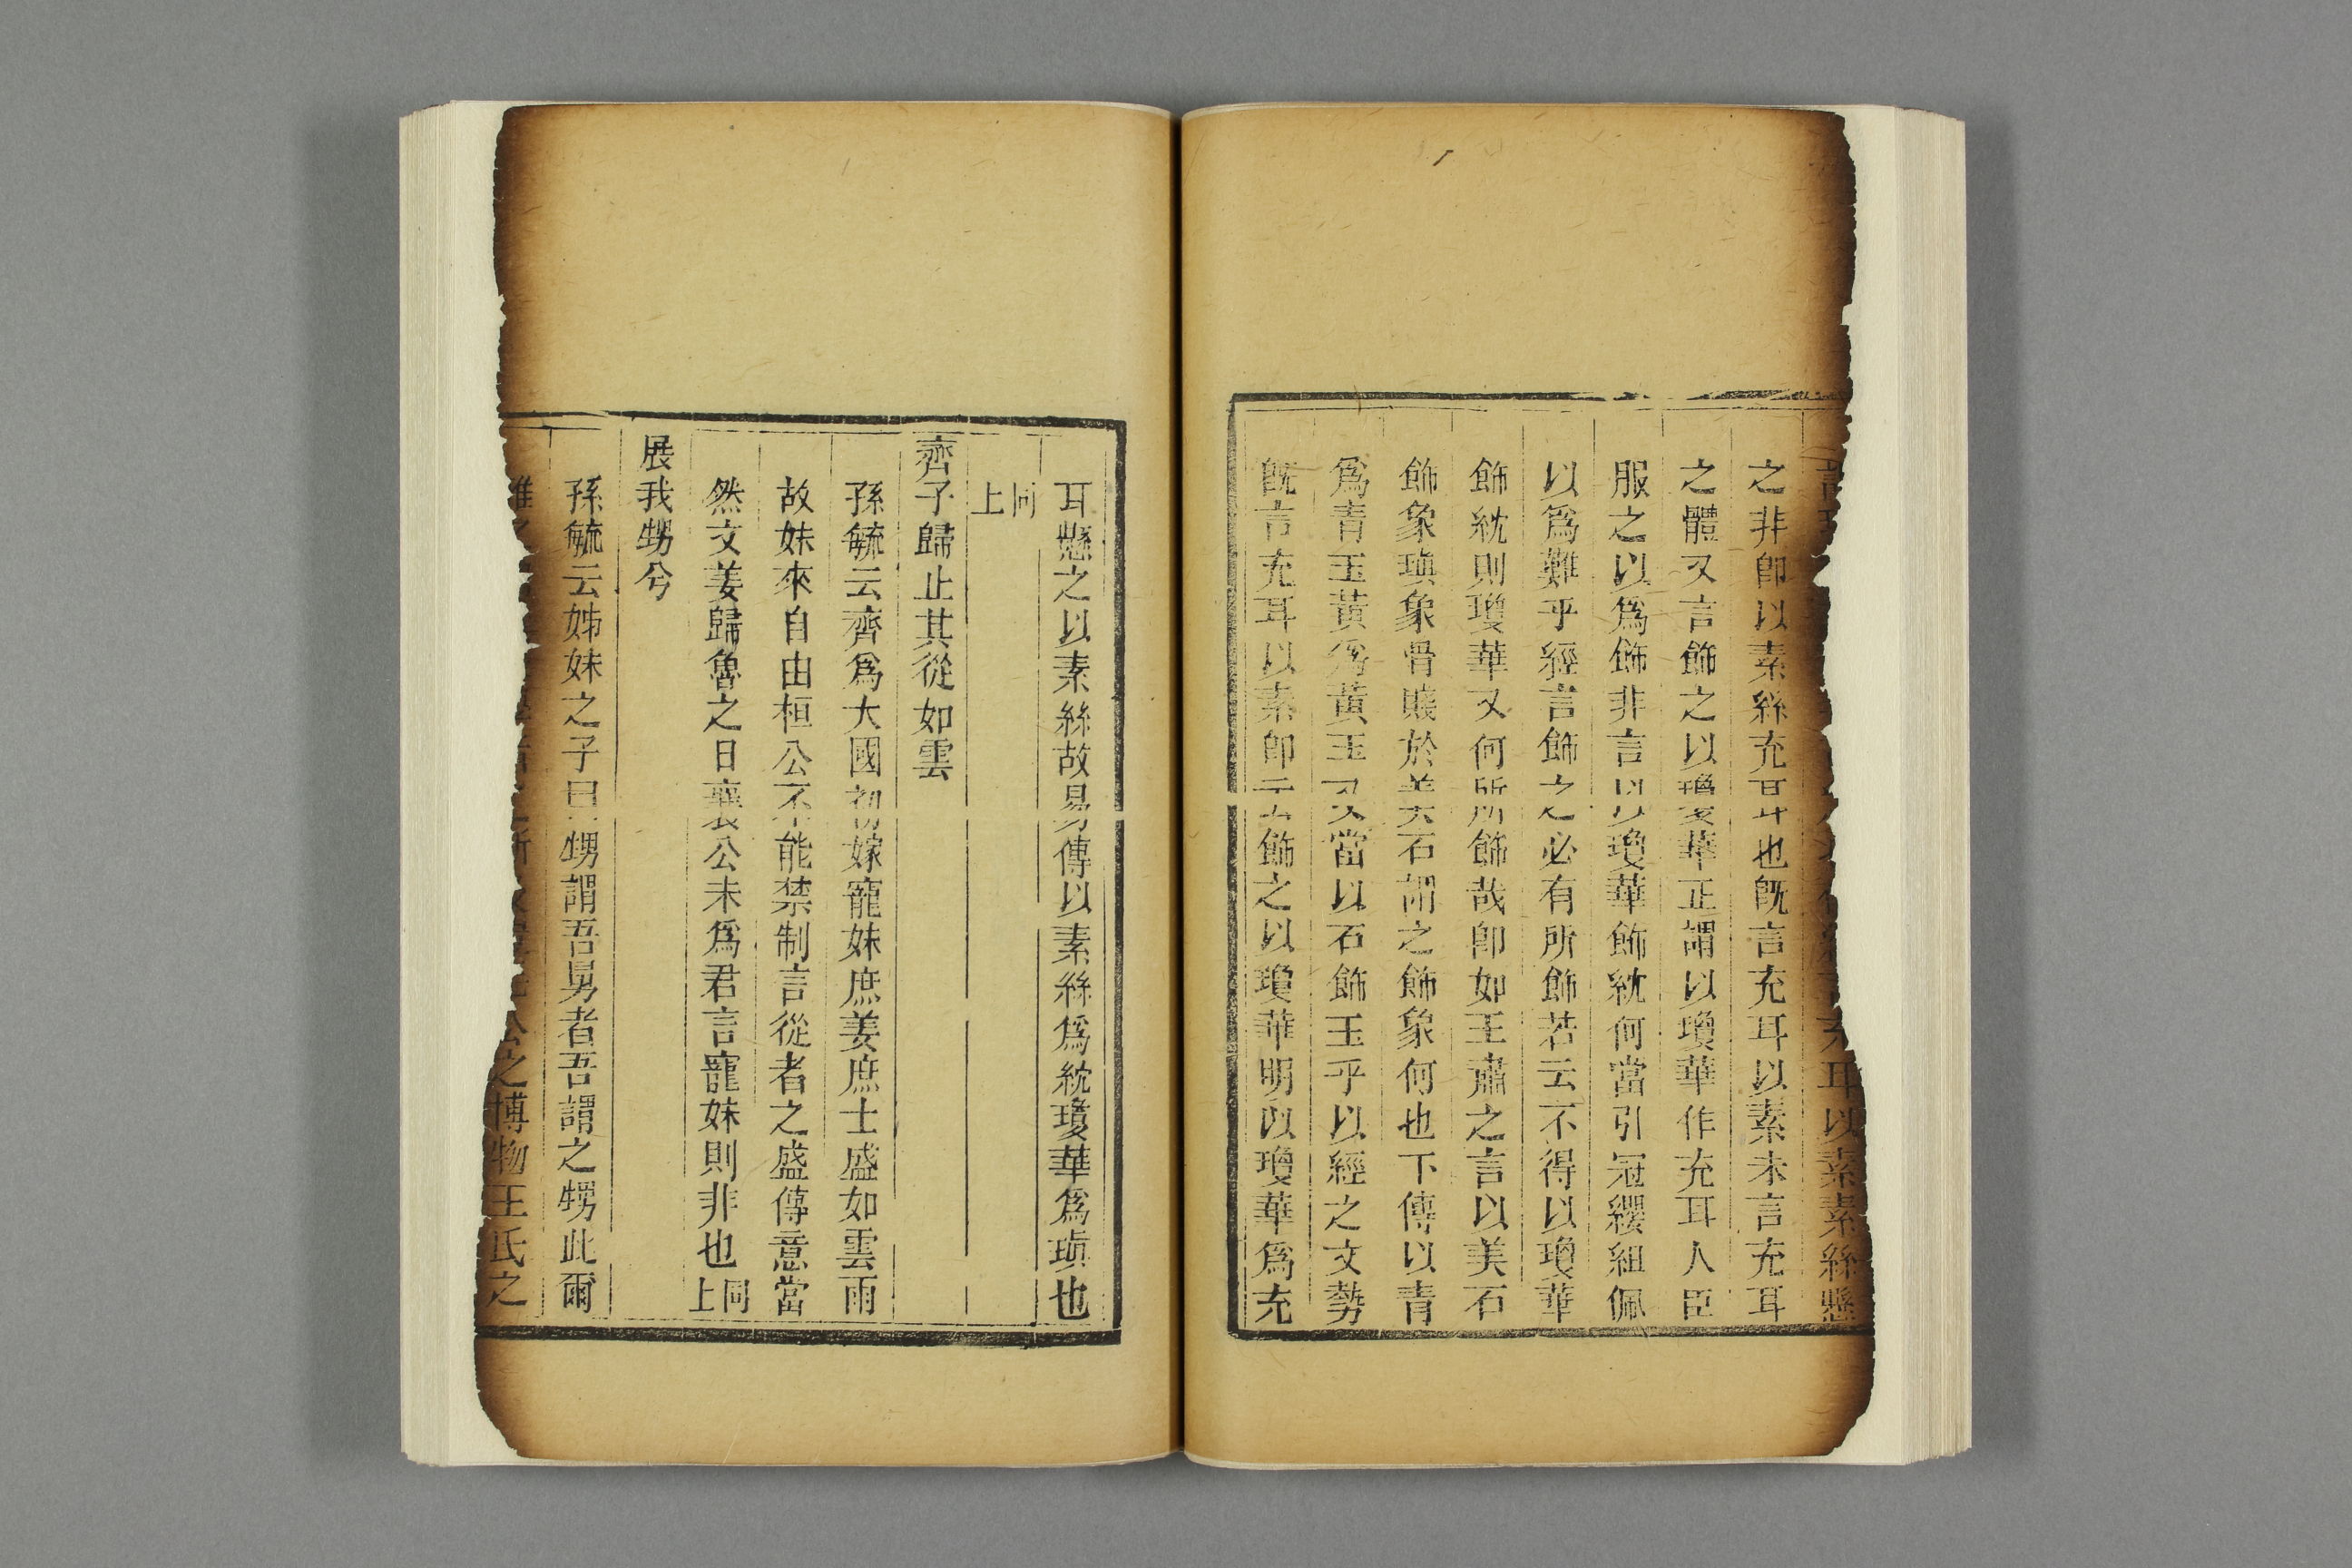 耳以素素絲懸
之非卽以素絲充耳也旣言充耳以素未言充耳
之體又言飾之以瓊華正謂以瓊華作充耳人臣
服之以爲飾非言以瓊華飾紞何當引冠纓組佩
以爲難乎經言飾之必有所飾若云不得以瓊華
飾紞則瓊華又何所飾哉卽如王肅之言以美石
飾象瑱象骨賤於美石謂之飾象何也下傳以青
爲青玉黃爲黃玉又當以石飾玉乎以經之文勢
旣言充耳以素卽云飾之以瓊華明以瓊華爲充
耳懸之以素絲故易傳以素絲爲紞瓊華爲瑱也
同上
齊子歸止其從如雲
孫毓云齊爲大國初嫁寵妹庶姜庶士盛如雲雨
故妹來自由桓公不能禁制言從者之盛傳意當
然文姜歸魯之日襄公未爲君言寵妹則非也同上
展我甥兮
孫毓云姊妹之子曰甥謂吾舅者吾謂之甥此爾
公之博物王氏之